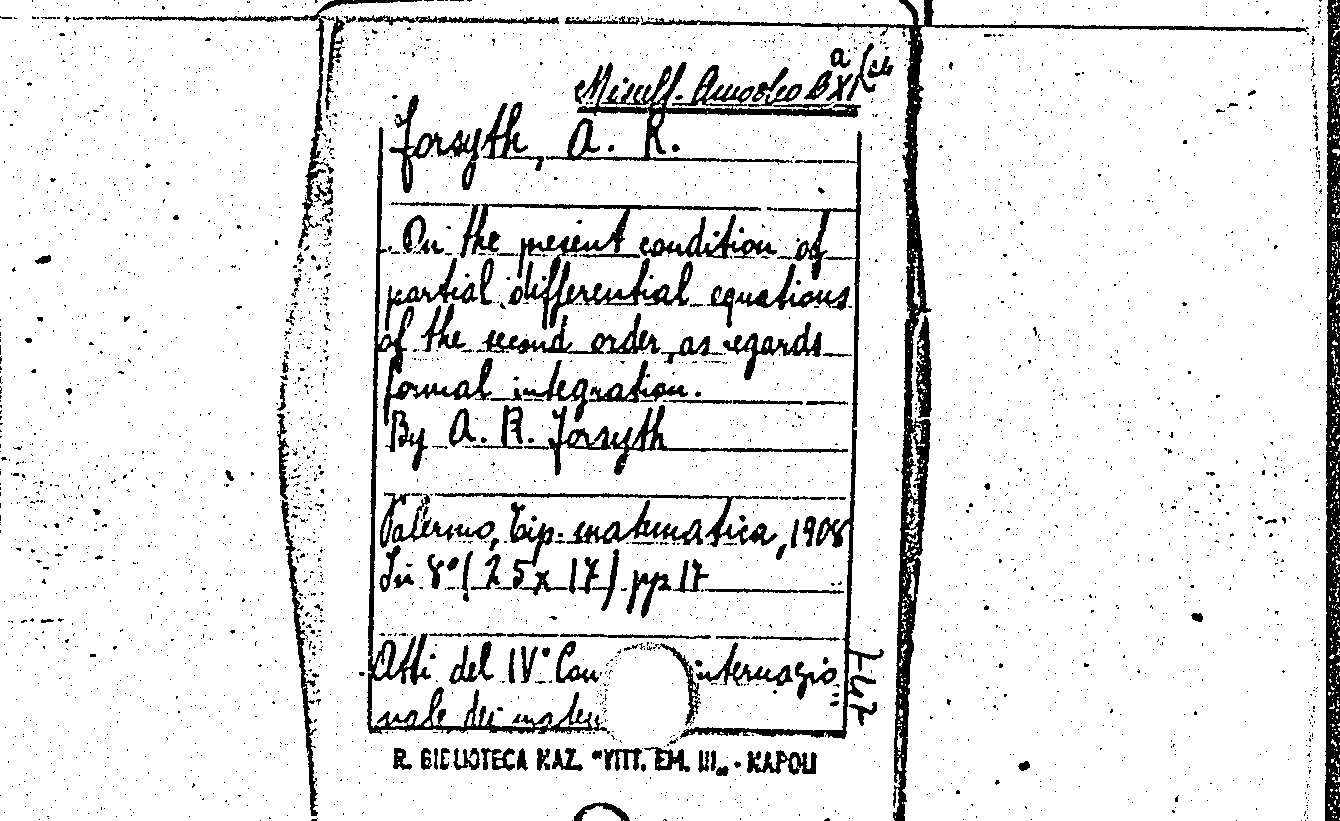 Miscell. Amodeo B
Forsyth, A. R.
On the present condition of
partial differential equations
of the second order, as regards
formal integration.
By A. R. Forsyth
Palermo, Tip. matematica, 1908
In 8° (25 x 17) pp 17
Atti del IV° Con internazio
nale dei matem
R. BIBLIOTECA NAZ. "VITT. EM. III„ - NAPOLI